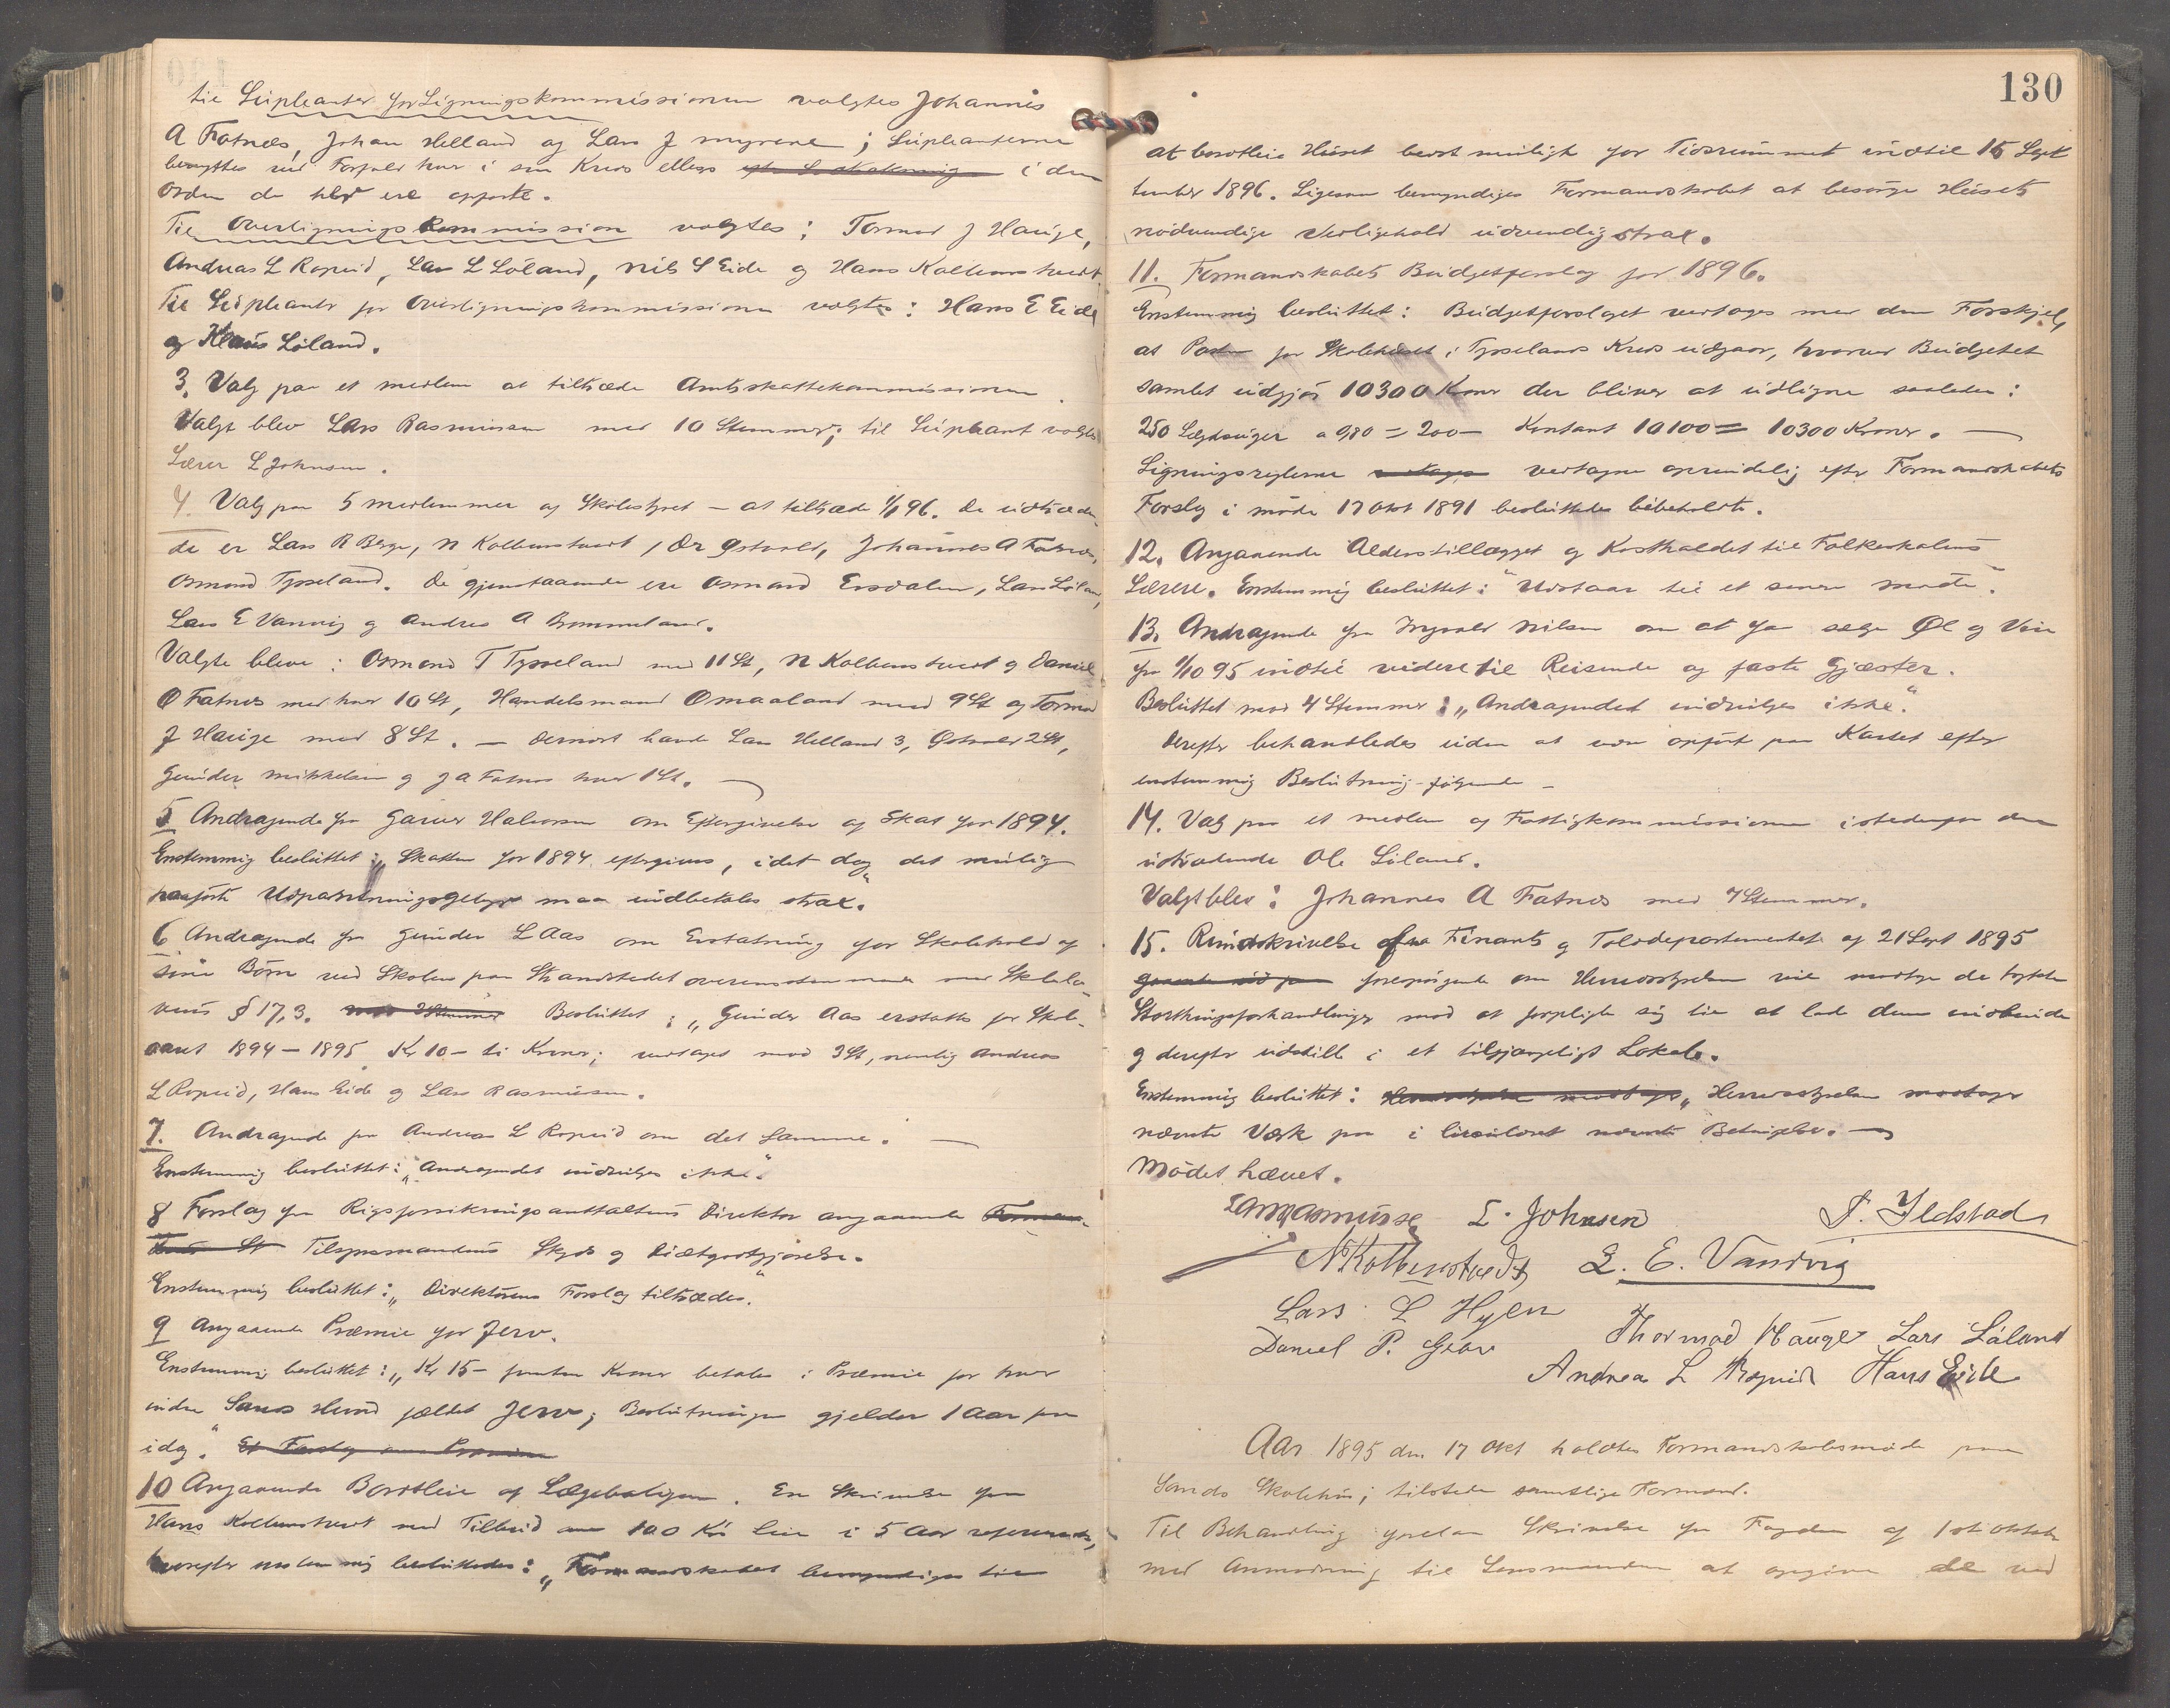 til Supleanter for Ligningskommissionen valgtes Johannes
A Fatnes, Johan Helland og Lars J Myrene; Supleanterne
benyttes ved Forfald hver i sin Kreds ellers i den
Orden de her ere opførte.
Til Overligningskommission valgtes: Tormod J Hauge,
Andreas L Ropeid, Lars L Løland, Nils S Eide og Hans Kolbenstvedt
Til Supleanter for Overligningskommissionen valgtes: Hans E Eide
og Klaus Løland.
3. Valg paa et medlem at tiltræde Amtsskattekommissionen.
Valgt blev Lars Rasmussen med 10 Stemmer; til Supleant valgtes
Lærer L Johnsen.
4. Valg paa 5 medlemmer af Skolestyret – at tiltræde 1/1 96. De udtræden-
de er Lars R Berge, N Kolbenstvedt, Dr Østvold, Johannes A Fatnes,
Osmond Tysseland. De gjenstaaende ere Osmond Ersdalen, Lars Løland,
Lars E Vanvig og Andres A Brommeland.
Valgte bleve: Osmond T Tysseland med 11 St, N Kolbenstvedt og Daniel
O Fatnes med hver 10 St, Handelsmand Omaaland med 9 St og Tormod
J Hauge med 8 St. – Dernæst havde Lars Helland 3, Østvold 2 St,
Gunder Mikkelsen og J A Fatnes hver 1 St. –
5 Andragende fra Garver Halvorsen om Eftergivelse af Skat for 1894.
Enstemmig besluttet: „Skatten for 1894 eftergives, idet dog det mulig
paaførte Udpantningsgebyr maa indbetales strax."
6 Andragende fra Gunder L Aas om Erstatning for Skolehold af
sine Børn ved Skolen paa Strandstedet overensstemmende med Skolelo-
vens § 17,3. med 2 Stemmer Besluttet: „Gunder Aas erstattes for Skole-
aaret 1894–1895 Kr 10– ti Kroner; vedtaget mod 3 St, nemlig Andreas
L Ropeid, Hans Eide og Lars Rasmussen.
7. Andragende fra Andreas L Ropeid om det samme. –
Enstemmig besluttet: „Andragendet indvilges ikke."
8 Forslag fra Rigsforsikringsanstaltens Direktør angaaende
Tilsynsmandens Skyds og Diætgodtgjørelse.
Enstemmig besluttet: „Direktørens Forslag tiltrædes."
9 Angaaende Præmie for Jerv.
Enstemmig besluttet: „Kr 15– femten Kroner betales i Præmie for hver
inden Sands Herred fældet Jerv; Beslutningen gjelder 1 Aar fra
idag." Et Forslag om Præmien
10 Angaaende Bortleie af Lægeboligen. En Skrivelse fra
Hans Kolbenstvedt med Tilbud om 100 Kr leie i 5 Aar refereredes,
hvorefter enstemmig besluttedes: „Formandskabet bemyndiges til
130
at bortleie Huset bedst muligt for Tidsrummet indtil 15 Sept
tember 1896. Ligesom bemyndiges Formandskabet at besørge Husets
nødvendige Vedligehold udvendig strax.
11. Formandskabets Budgetforslag for 1896.
Enstemmig besluttet: Budgetforslaget vedtages med den Forskjel,
at Posten for Skolehuset i Tysselands Kreds udgaar, hvorved Budgetet
samlet udgjør 10300 Kroner der bliver at udligne saaledes:
250 Lægdsuger a 0,80 = 200– Kontant 10100 = 10300 Kroner. –
Ligningsreglerne vedtages vedtagne oprindelig efter Formandskabets
Forslag i møde 17 Okt 1891 besluttedes bibeholdte.
12. Angaaende Alderstillægget og Kostholdet til Folkeskolens
Lærere. Enstemmig besluttet: "Udstaar til et senere møde".
13. Andragende fra Ingvald Nilsen om at faa sælge Øl og Vin
fra 1/10 95 indtil videre til Reisende og faste Gjæster.
Besluttet mod 4 Stemmer: „Andragendet indvilges ikke."
Derefter behandledes uden at være opført paa Kartet efter
enstemmig Beslutning følgende –
14. Valg paa et medlem af Fattigkommissionen istedenfor den
udtrædende Ole Løland.
Valgt blev: Johannes A Fatnes med 7 Stemmer.
15. Rundskrivelse fra Finants og Tolddepartementet af 21 Sept 1895
forespørgende om Herredsstyrelsen vil modtage de trykte
Storthingsforhandlinger mod at forpligte sig til at lade dem indbinde
og derefter udstille i et tilgjængeligt Lokale.
Enstemmig besluttet: Herredsstyrelsen modtager „Herredsstyrelsen modtager
nævnte Værk paa i Circulæret nævnte Betingelser. –
Mødet hævet.
Lars Rasmussen L. Johnsen P. Ildstad
N Kolbenstvedt L. E. Vandvig
Lars L Hylen
Daniel P. Thormod Hauge Lars Løland
Andreas L Ropeid Hans Eide
Aar 1895 den 17 Okt holdtes Formandskabsmøde paa
Sands Skolehus; tilstede samtlige Formænd.
Til Behandling forelaa Skrivelse fra Fogden af 1ste Oktober
med Anmodning til Lensmanden at opgive de ved